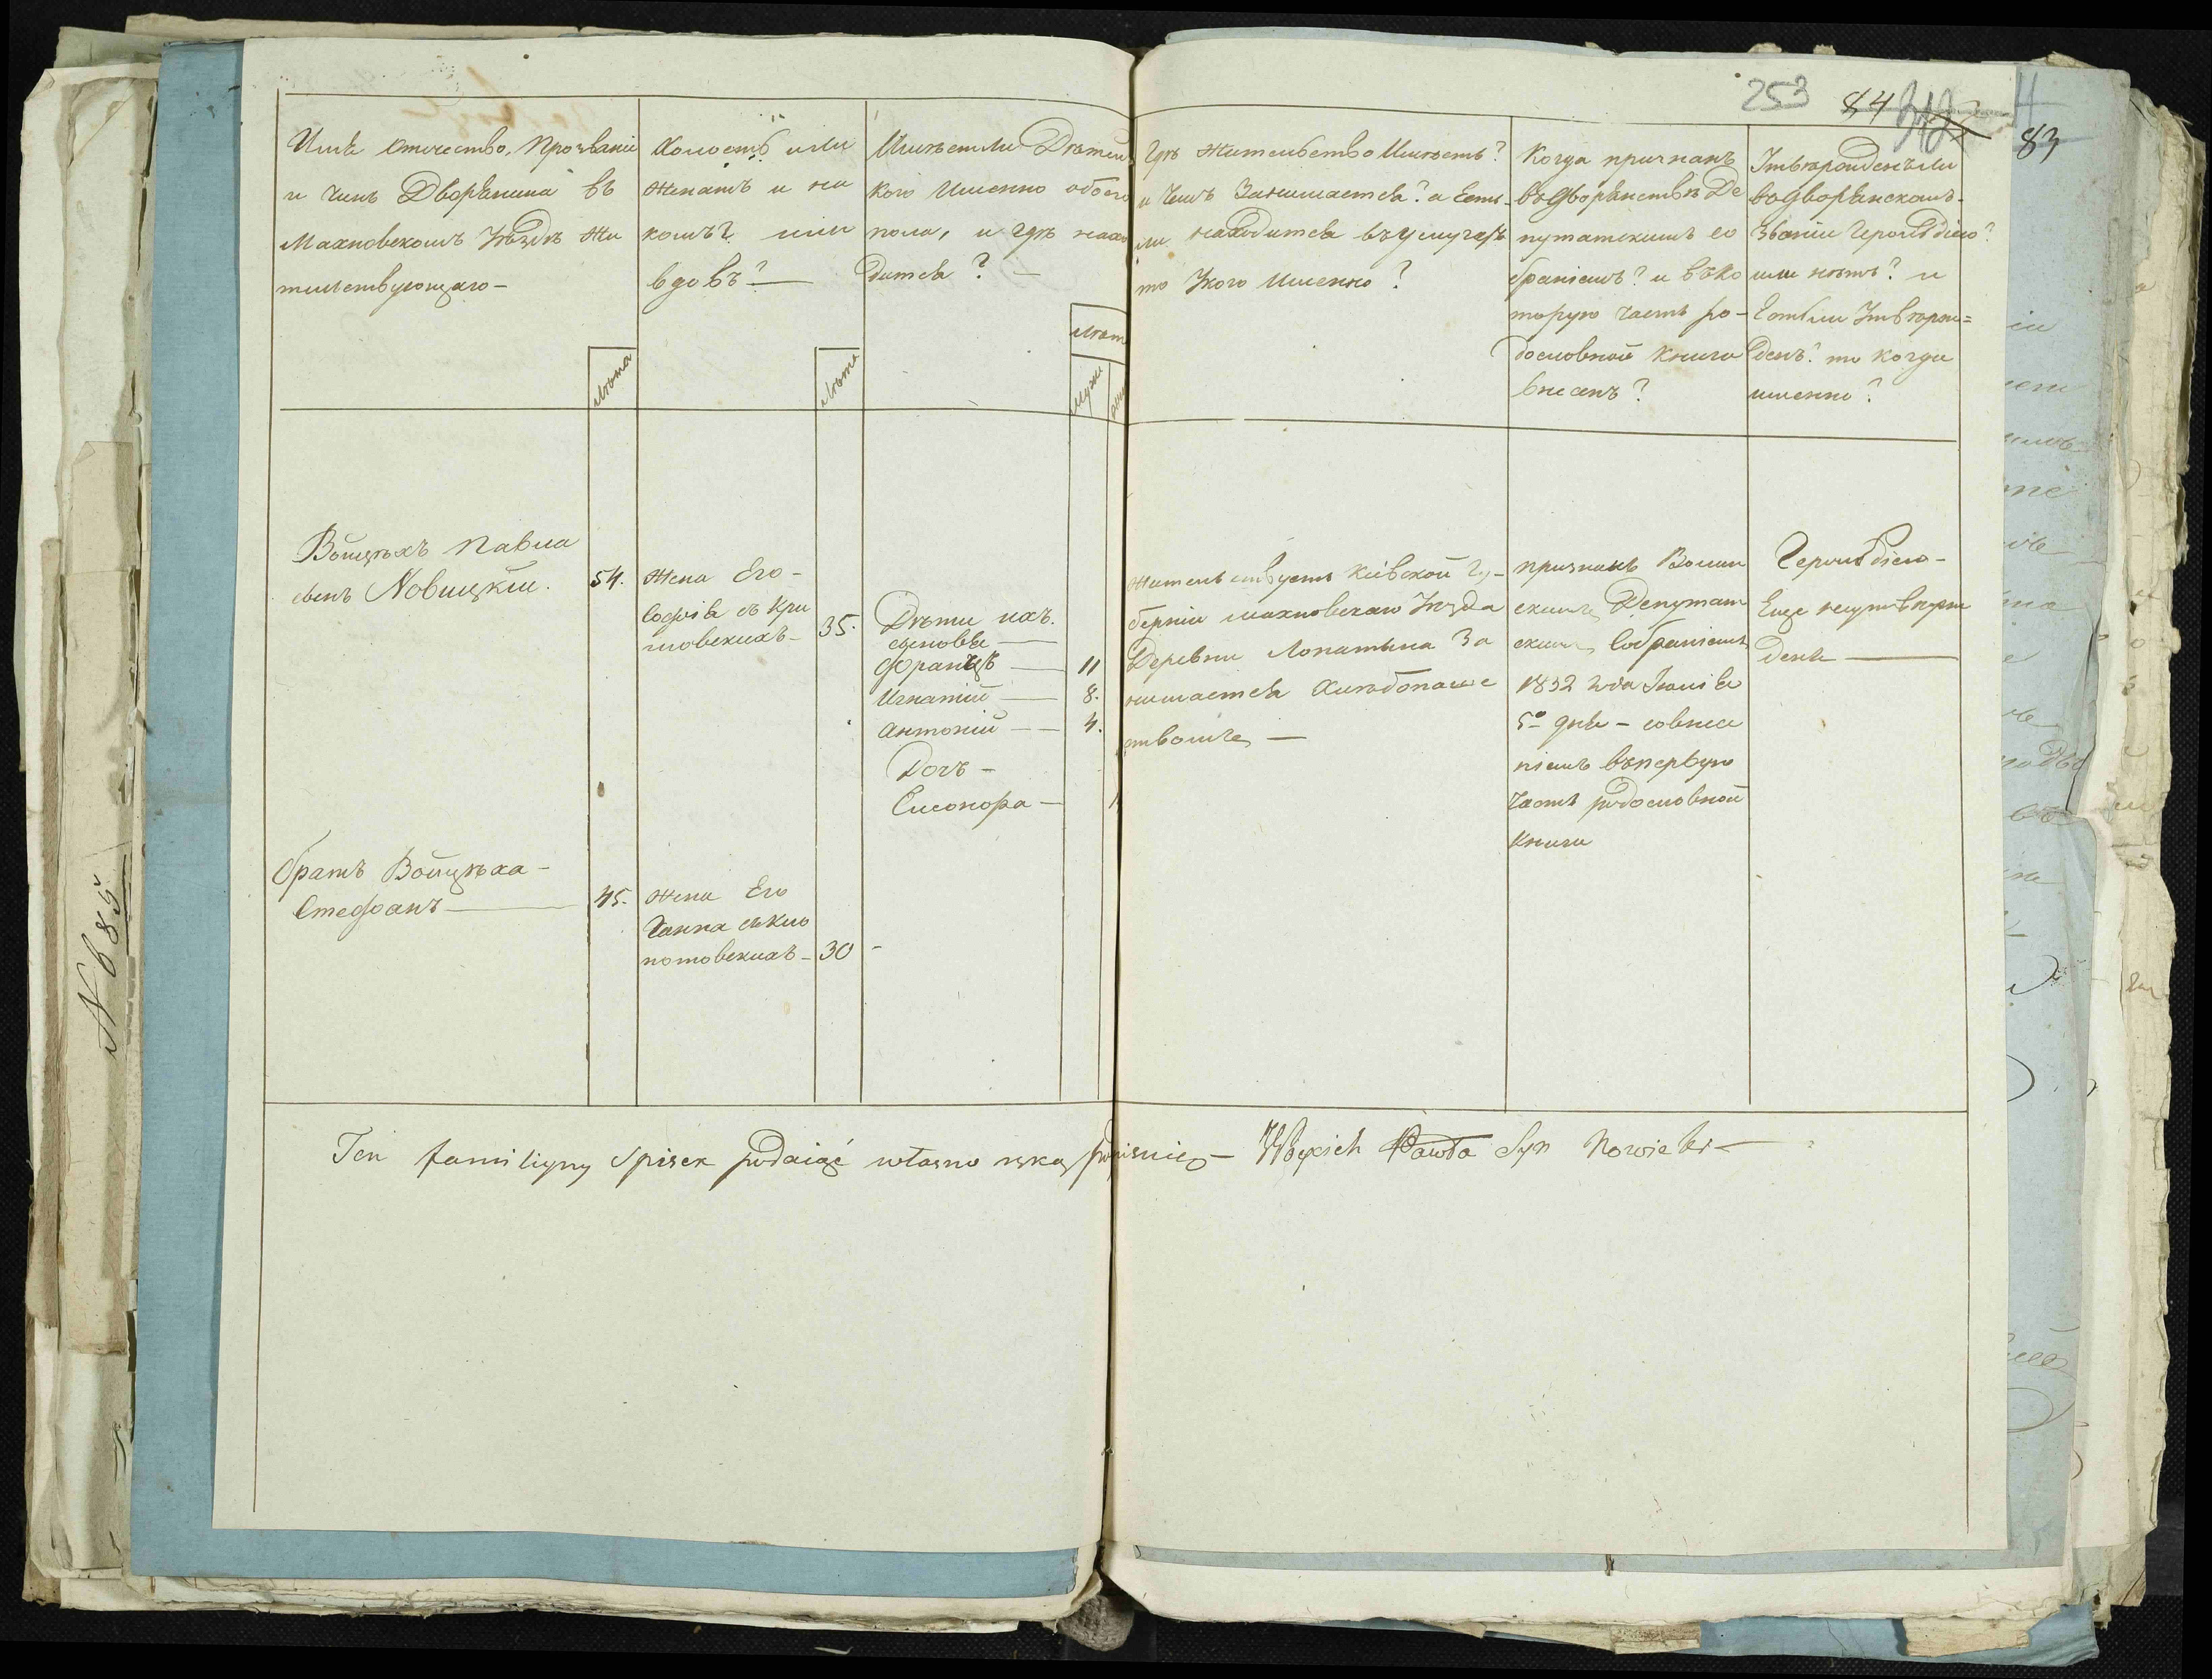 253 84 83
Имя отчество, Прозваніе
и Чинъ Дворянина въ
Махновскомъ Уѣздѣ Жи
тельствующаго —
Лѣта
Холостъ или
Женатъ и на
комъ? или
вдовъ? —
Лѣта
Имѣетъли Дѣтей
кого Именно обоего
пола, и гдѣ нахо
дится? —
Лѣт
Муже
Гдѣ Жительство Имѣетъ?
и Чемъ Занимается? а Есть-
ли находится въ услугахъ
то Укого Именно?
Когда признанъ
въ дворянствѣ Де
путатскимъ со
браніемъ? и въ ко
торую часть ро-
дословной Книги
внесенъ?
Утвержденъ ли
въ дворянскомъ
Званіи Герольдіею?
или нѣтъ? и
Естьли Утвержд=
денъ? то когда
именно?
Войцѣхъ Павла
сынъ Новицкій.
54.
Жена Его —
Софія съ Кри
шовскихъ —
35.
Дѣти ихъ.
сыновья —
Францъ — 11
Игнатій — 8.
Антоній — 4.
Дочь —
Елеонора — 1
Жительствуетъ Кіевской Гу-
берніи Махновскаго Уѣзда
Деревни Лопатына За
нимается Хлѣбопаше
ствомъ —
признанъ Волын
скимъ Депутат
скимъ Собраніемъ
1832 года Іюня
5го дня — совнесе
ніемъ въ первую
часть родословной
Книги
Герольдіею —
Еще неутвержд
денъ —
братъ Войцѣха —
Стефанъ —
45.
Жена Его
Ганна съ Кло
потовскихъ —
30 —
Ten familiyny Spisek podaiąć własno ręką podpisuię — Woyciech Pawła Syn Nowicki —
N 685